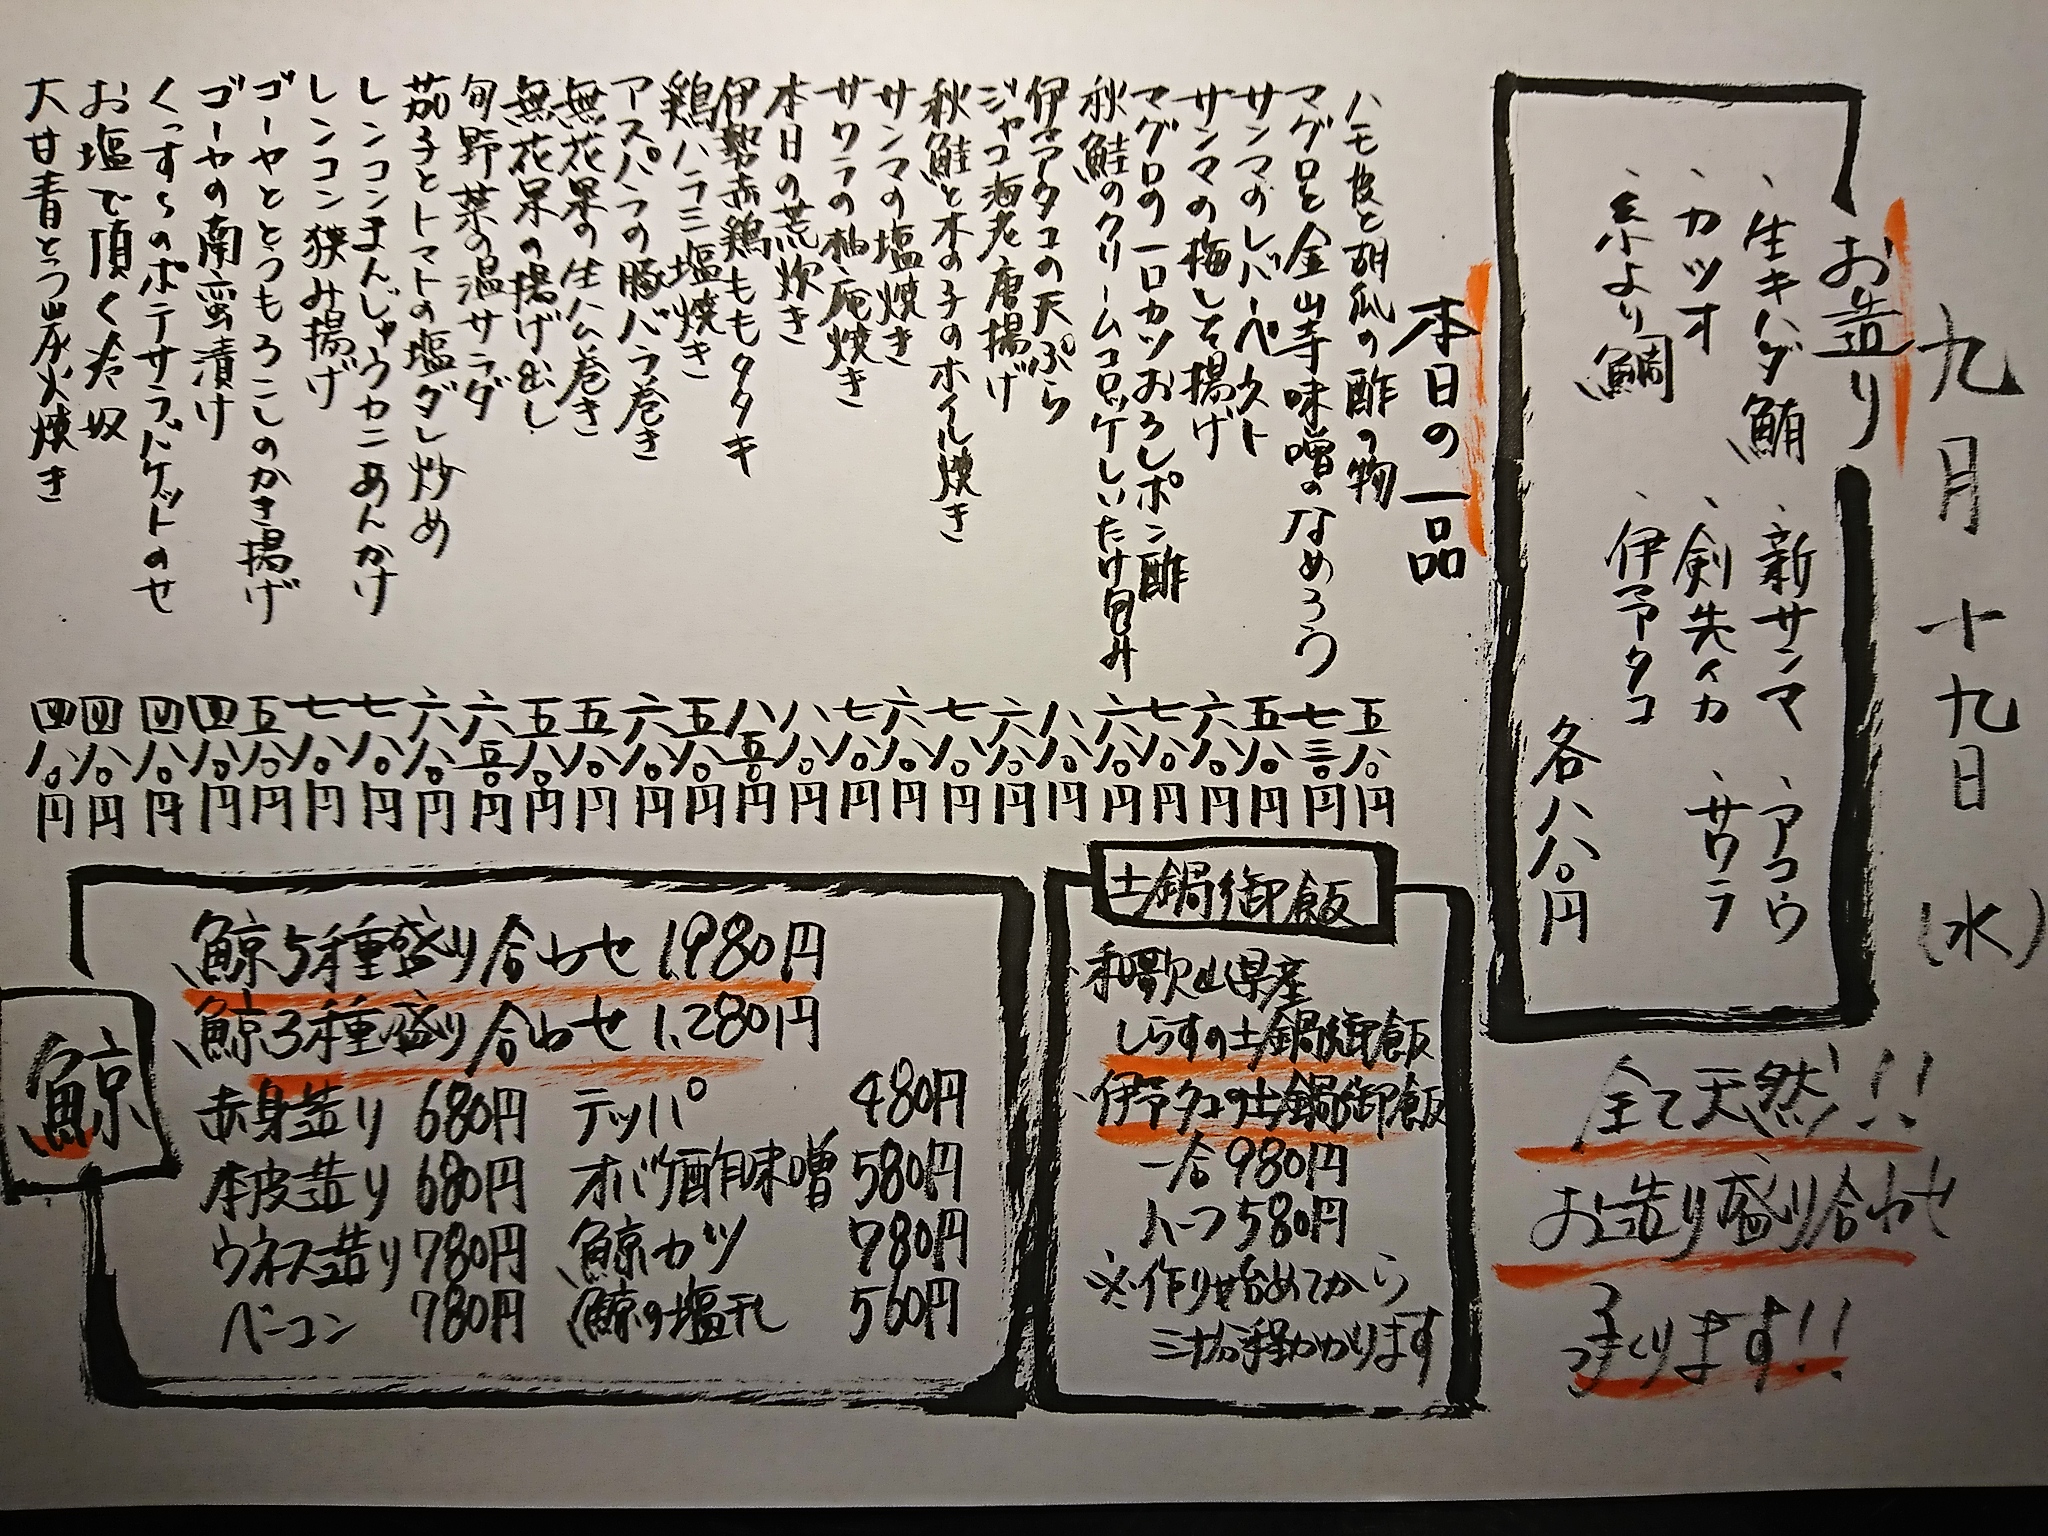 九月十九日(水)
お造り
、生キハダ鮪 、新サンマ 、アコウ
、カツオ 、剣先イカ 、サワラ
、糸より鯛 、伊予タコ
各八八〇円
全て天然!!
お造り盛り合わせ
承ります!!
本日の一品
ハモ皮と胡瓜の酢の物 五八〇円
マグロと金山寺味噌のなめろう 七三〇円
サンマのレバーペースト 五八〇円
サンマの梅しそ揚げ 六八〇円
マグロの一口カツおろしポン酢 七八〇円
秋鮭のクリームコロッケしいたけ包み 六八〇円
伊予タコの天ぷら 八八〇円
ジャコ海老唐揚げ 六八〇円
秋鮭と木の子のホイル焼き 七八〇円
サンマの塩焼き 六八〇円
サワラの柚庵焼き 七八〇円
本日の荒炊き 八八〇円
伊勢赤鶏ももタタキ 八五〇円
鶏ハラミ塩焼き 五八〇円
アスパラの豚バラ巻き 六八〇円
無花果の生ハム巻き 五八〇円
無花果の揚げ出し 五八〇円
旬野菜の温サラダ 六五〇円
茄子とトマトの塩ダレ炒め 六八〇円
レンコンまんじゅうカニあんかけ 七八〇円
レンコン狭み揚げ 七八〇円
ゴーヤととうもろこしのかき揚げ 五八〇円
ゴーヤの南蛮漬け 四八〇円
くっすらのポテサラバケットのせ 四八〇円
お塩で頂く冷奴 四八〇円
大甘青とう炭火焼き 四八〇円
土鍋御飯
、和歌山県産
しらすの土鍋御飯
、伊予タコの土鍋御飯
一合980円
ハーフ580円
※作り始めてから
三十分程かかります
鯨
鯨5種盛り合わせ 1,980円
鯨3種盛り合わせ 1,280円
赤身造り 680円 テッパ 480円
本皮造り 680円 オバケ酢味噌 580円
ウネス造り 780円 鯨カツ 780円
ベーコン 780円 鯨の塩干し 560円